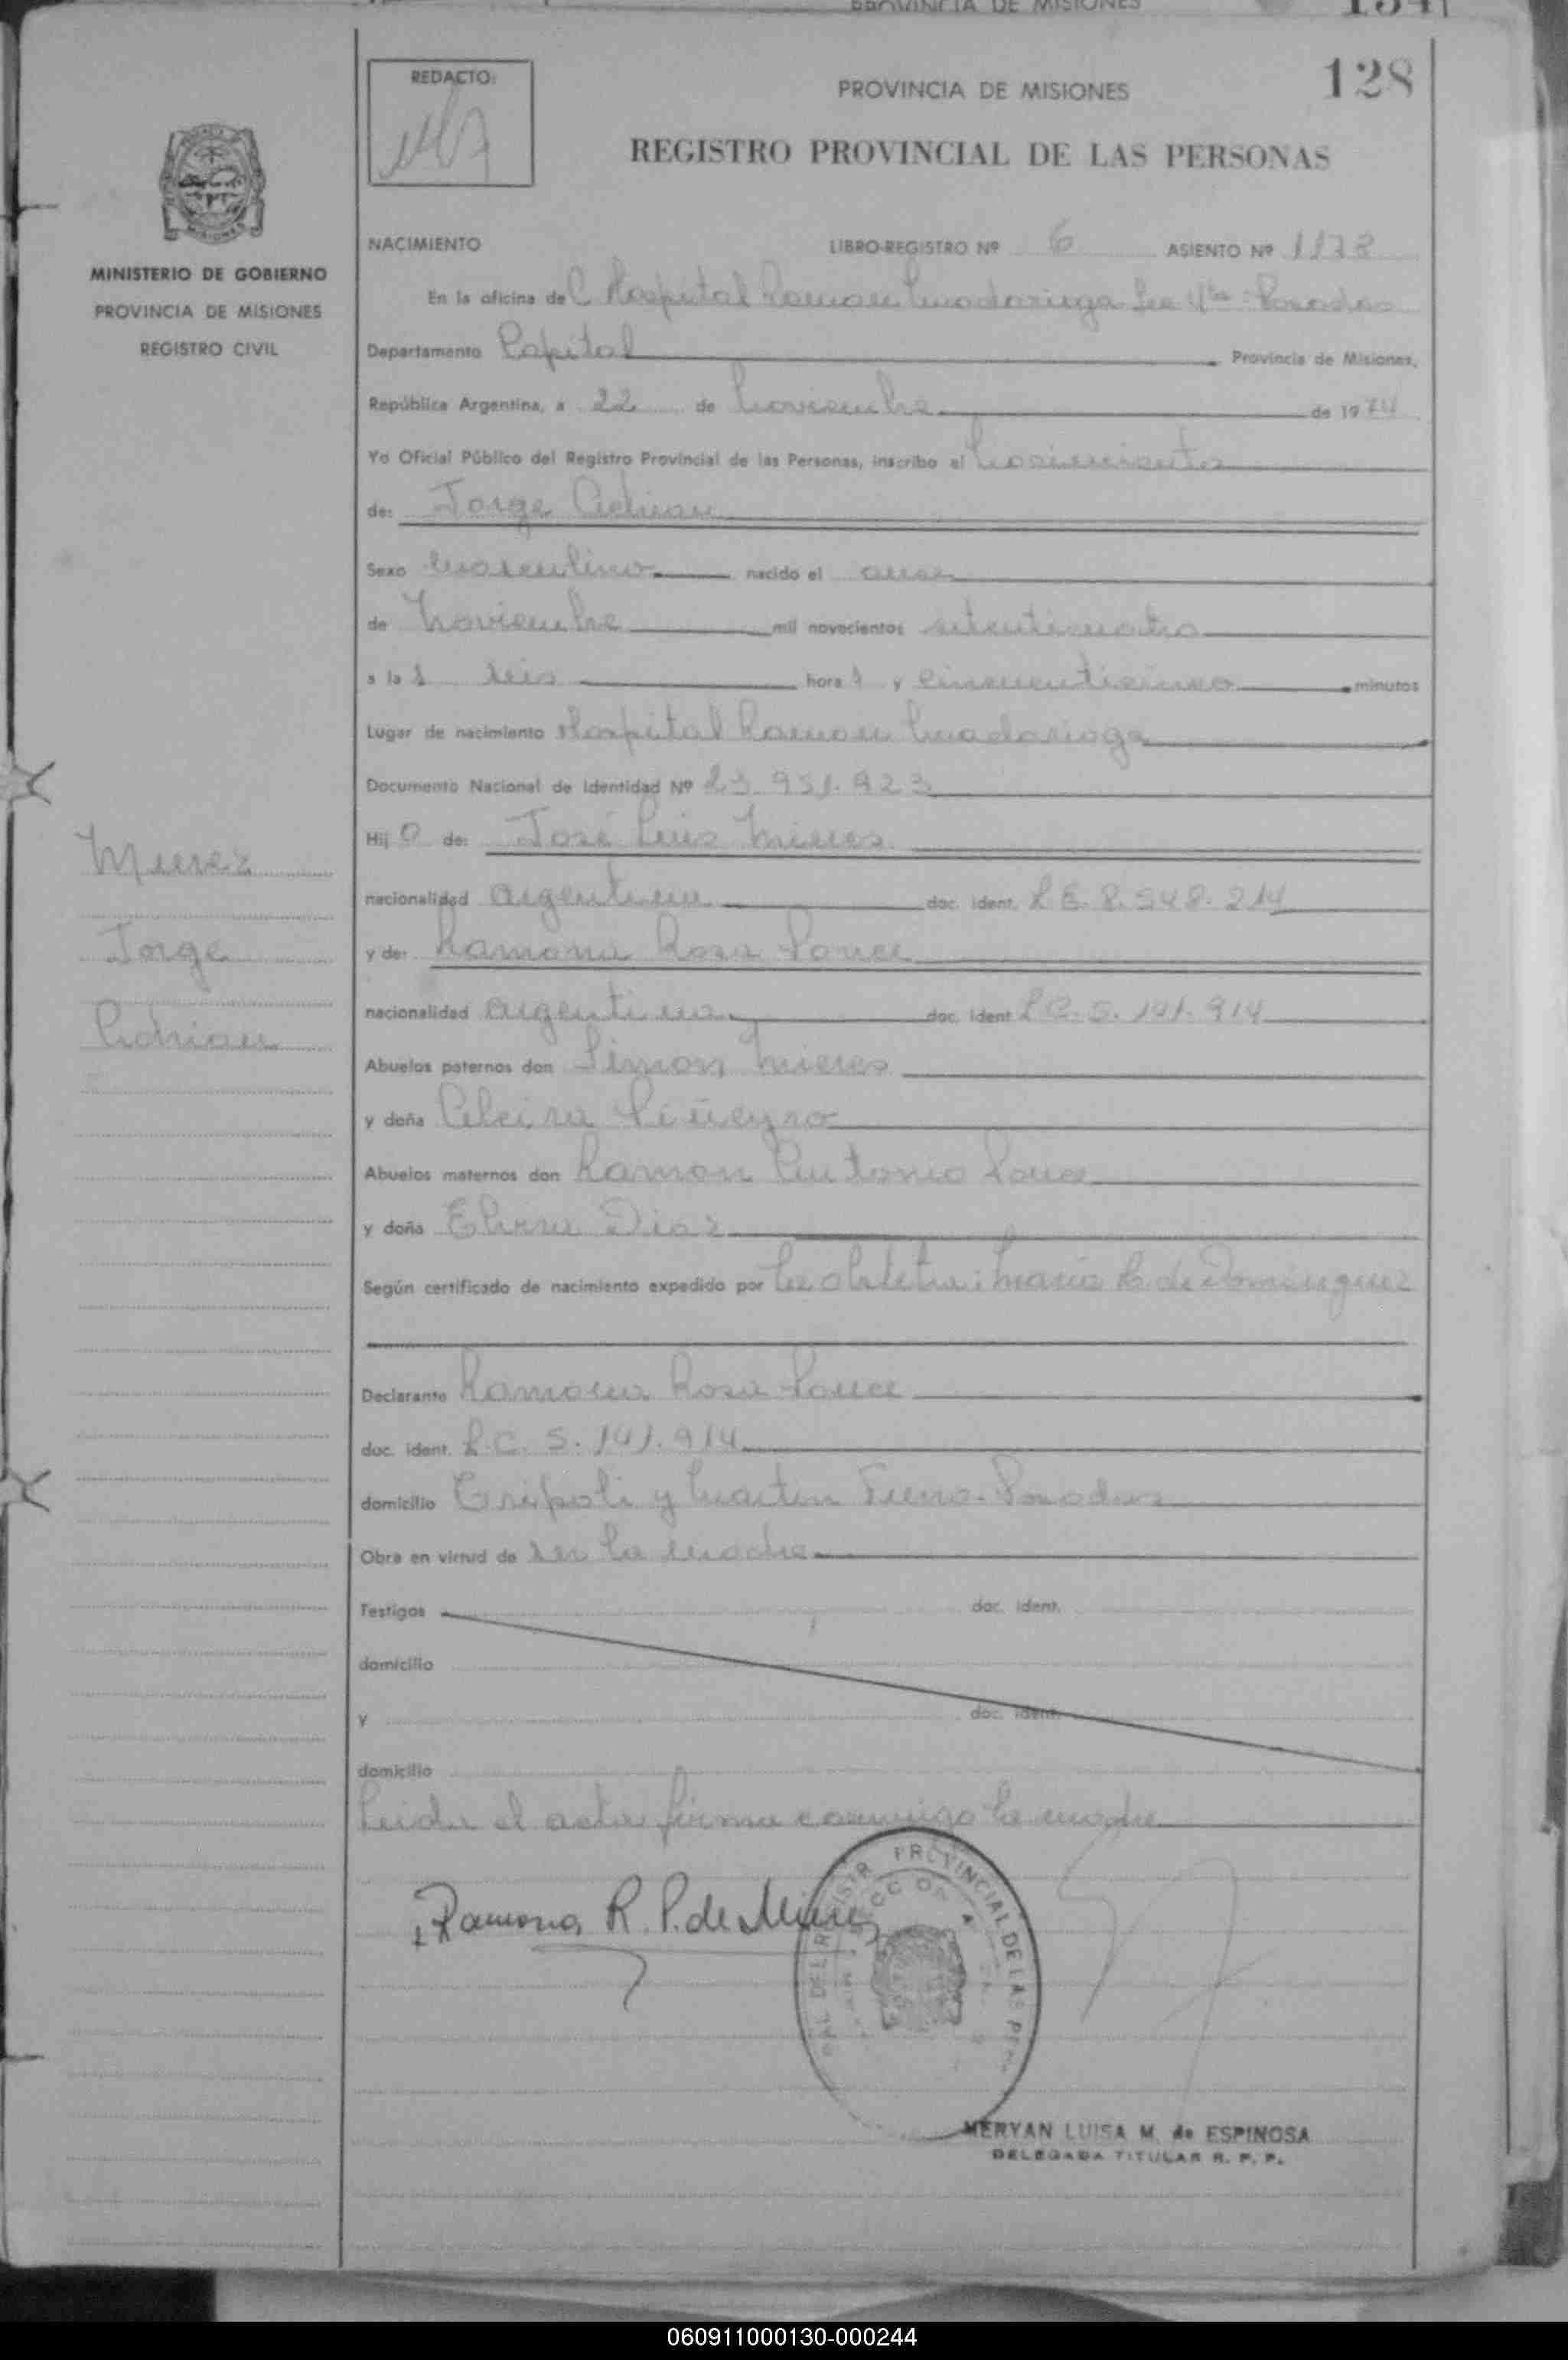 PROVINCIA DE MISIONES
128
REDACTO:
PROVINCIA DE MISIONES
REGISTRO PROVINCIAL DE LAS PERSONAS
MINISTERIO DE GOBIERNO
PROVINCIA DE MISIONES
REGISTRO CIVIL
Mieres
Jorge
Adrian
NACIMIENTO LIBRO-REGISTRO Nº 6 ASIENTO Nº 1178
En la oficina de Hospital Ramon Madariaga Posadas
Departamento Capital Provincia de Misiones,
República Argentina, a 22 de Noviembre de 1974
Yo Oficial Público del Registro Provincial de las Personas, inscribo el Nacimiento
de: Jorge Adrian
Sexo masculino nacido el once
de Noviembre mil novecientos setenticuatro
a la s seis hora s y cincuenticinco minutos
Lugar de nacimiento Hospital Ramon Madariaga
Documento Nacional de Identidad Nº 23.951.923
Hij o de: José Luis Mieres
nacionalidad argentina doc. ident. L E. 8.548.214
y de: Ramona Rosa Ponce
nacionalidad argentina doc. ident L C. 5.141.914
Abuelos paternos don Simon Mieres
y doña Piñeyro
Abuelos maternos don Ramon Antonio Ponce
y doña Elvira Diaz
Según certificado de nacimiento expedido por la obstetra: Maria de Dominguez
Declarante Ramona Rosa Ponce
doc. ident. L.C. 5.141.914
domicilio Tripoli y Martin Fierro - Posadas
Obra en virtud de ser la madre
Testigos doc. ident.
domicilio
y doc. ident.
domicilio
Leida el acta firma conmigo la madre
Ramona R. P. de Mieres
PROVINCIAL DE LAS
MERYAN LUISA M. de ESPINOSA
DELEGADA TITULAR R. P. P.
060911000130-000244